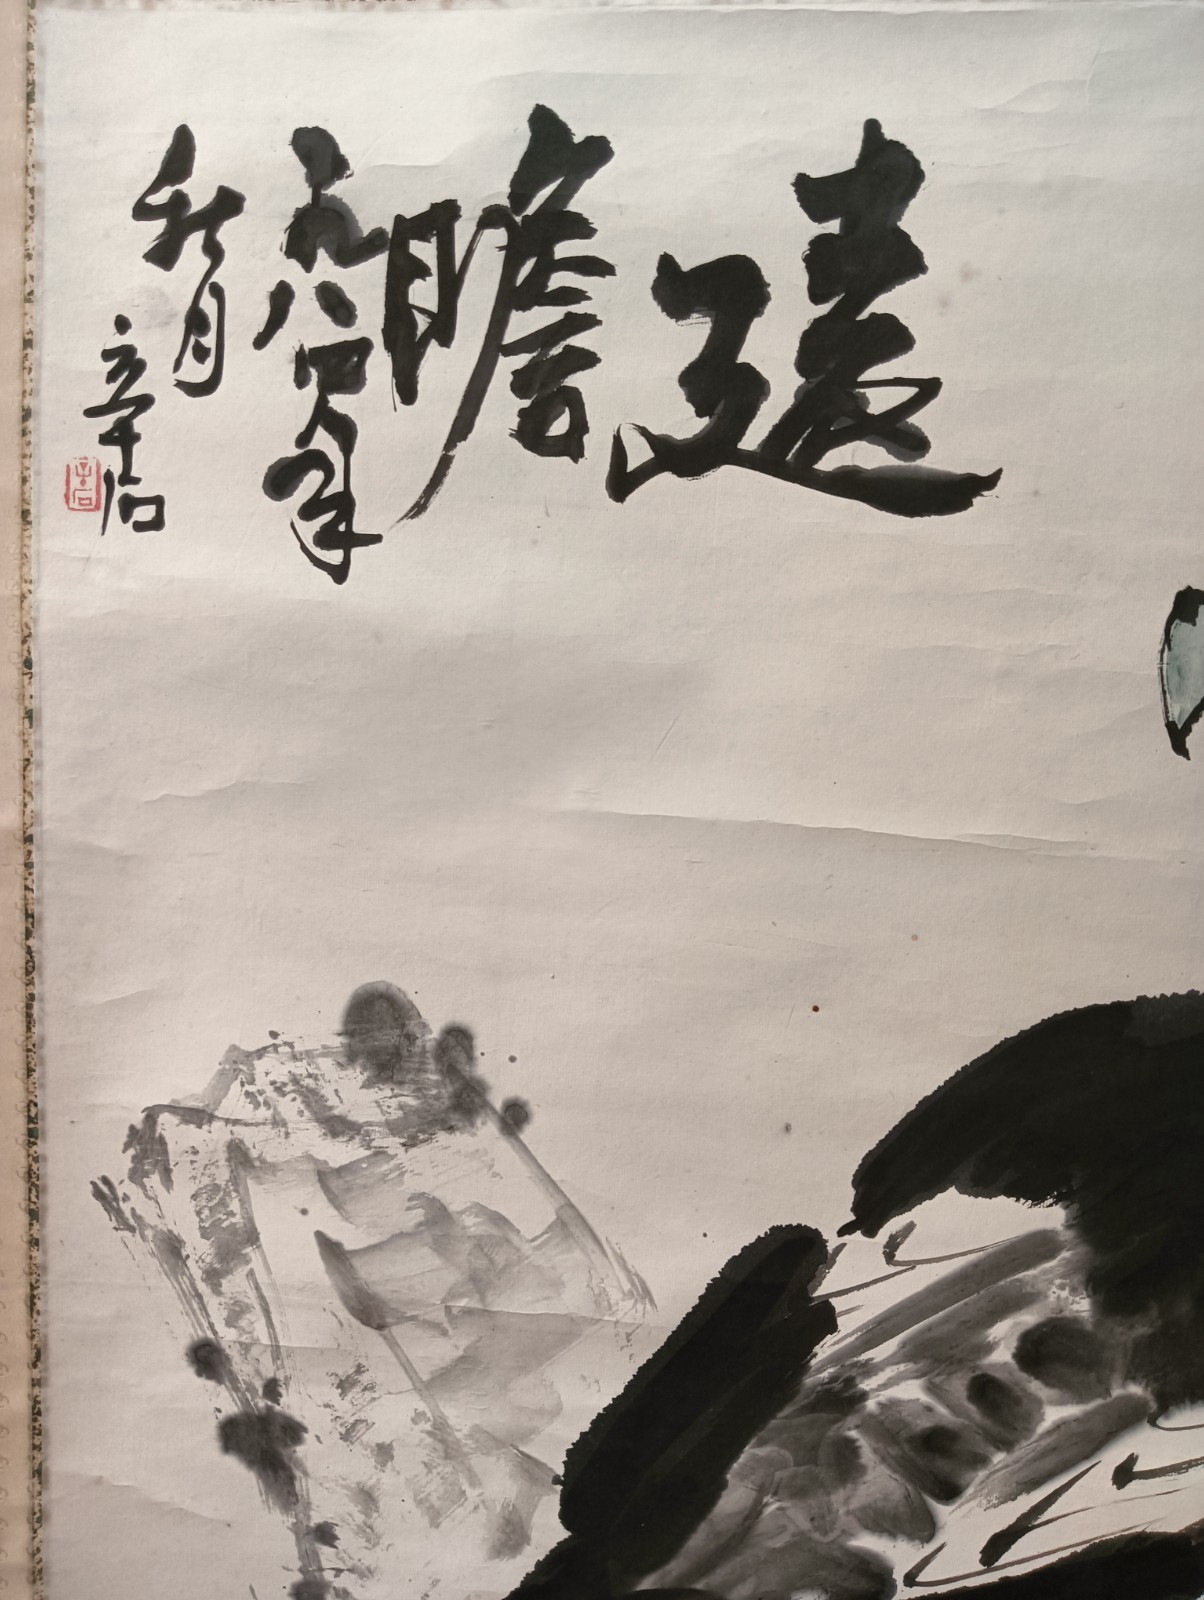 遠瞻
一九八四年
秋月
辛石